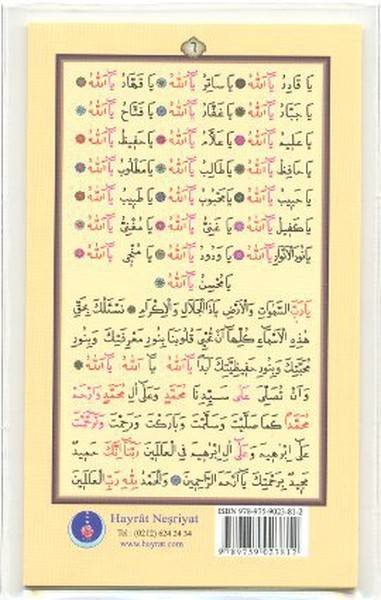 ٦
يا قادر يا الله يا ساتر يا الله يا قهار يا الله
يا جبار يا الله يا غفار يا الله يا فتاح يا الله
يا عليم يا الله يا علام يا الله يا حفيظ يا الله
يا حافظ يا الله يا طالب يا الله يا مطلوب يا الله
يا حبيب يا الله يا محبوب يا الله يا طبيب يا الله
يا كفيل يا الله يا غني يا الله يا مغني يا الله
يا نور الانوار يا الله يا ودود يا الله يا منجي يا الله
يا محسن يا الله
يا رب السموات والارض يا ذا الجلال والاكرام نسئلك بحق
هذه الاسماء كلها ان تحيي قلوبنا بنور معرفتك وبنور
محبتك وبنور حفيظيتك ابدا يا الله يا الله يا الله
وان تصلى على سيدنا محمد وعلى ال محمد وارحم
محمدا كما صليت وسلمت وباركت ورحمت وترحمت
على ابرهيم وعلى ال ابرهيم في العالمين ربنا انك حميد
مجيد برحمتك يا ارحم الراحمين والحمد لله رب العالمين
Hayrât Neşriyat
Tel : (0212) 624 24 34
www.hayrat.com
ISBN 978-975-9023-81-2
9789759023812